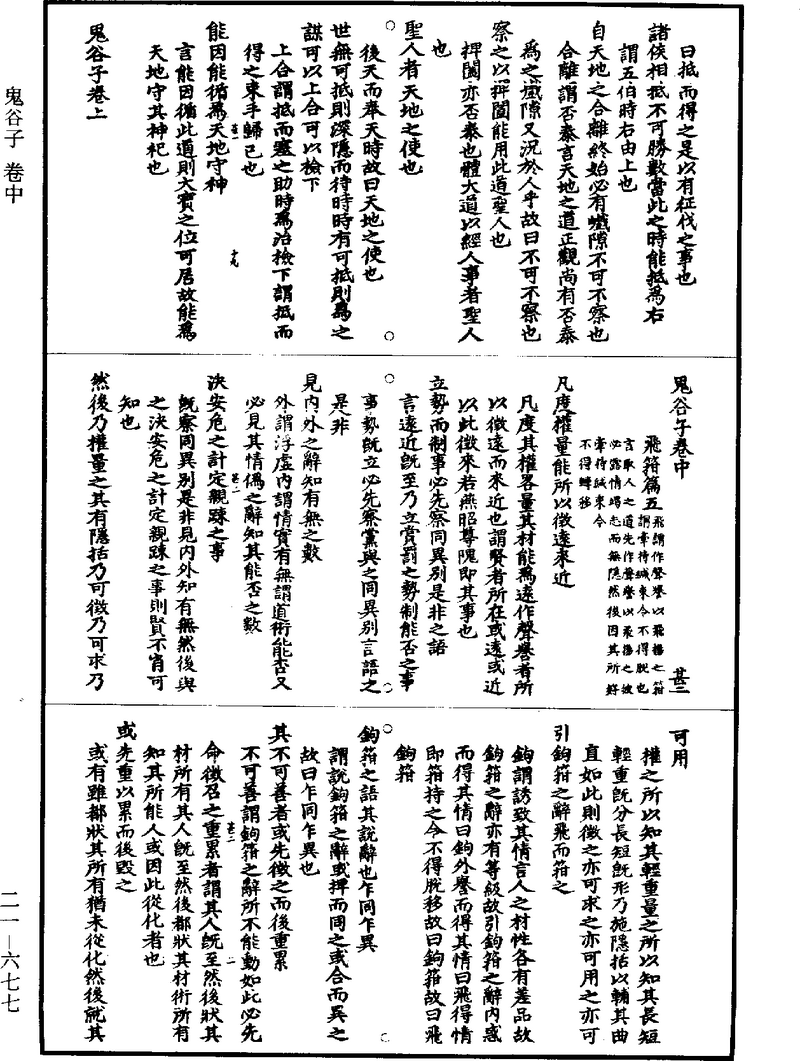 曰抵而得之是以有征伐之事也
諸侯相抵不可勝數當此之時能抵爲右
謂五伯時右由上也
自天地之合離終始必有巇隙不可不察也
合離謂否泰言天地之道正觀尚有否泰
爲之巇隙又況於人乎故曰不可不察也
察之以捭闔能用此道聖人也
捭闔亦否泰也體大道以經人事者聖人
也
聖人者天地之使也
後天而奉天時故曰天地之使也
世無可抵則深隱而待時時有可抵則爲之
謀可以上合可以檢下
上合謂抵而塞之助時爲治檢下謂抵而
得之束手歸己也
能因能循爲天地守神
言能因循此道則大寶之位可居故能爲
天地守其神祀也
鬼谷子卷上
鬼谷子卷中
甚三
飛箝篇五
飛謂作聲譽以飛揚之箝
謂牽持緘束令不得脫也
言取人之道先作聲譽以飛揚之彼
必露情竭志而無隱然後因其所好
牽持緘束令
不得轉移
凡度權量能所以徵遠來近
凡度其權畧量其材能爲遠作聲譽者所
以徵遠而來近也謂賢者所在或遠或近
以此徵來若燕昭尊隗即其事也
立勢而制事必先察同異別是非之語
言遠近旣至乃立賞罰之勢制能否之事
事勢旣立必先察黨與之同異別言語之
是非
見内外之辭知有無之數
外謂浮虛内謂情實有無謂道術能否又
必見其情僞之辭知其能否之數
決安危之計定親踈之事
旣察同異別是非見内外知有無然後與
之決安危之計定親踈之事則賢不肖可
知也
然後乃權量之其有隱括乃可徵乃可求乃
可用
權之所以知其輕重量之所以知其長短
輕重旣分長短旣形乃施隱括以輔其曲
直如此則徵之亦可求之亦可用之亦可
引鉤箝之辭飛而箝之
鉤謂誘致其情言人之材性各有差品故
鉤箝之辭亦有等級故引鉤箝之辭内惑
而得其情曰鉤外譽而得其情曰飛得情
即箝持之令不得脫移故曰鉤箝故曰飛
鉤箝
鉤箝之語其說辭也乍同乍異
謂說鉤箝之辭或捭而同之或合而異之
故曰乍同乍異也
其不可善者或先徵之而後重累
不可善謂鉤箝之辭所不能動如此必先
命徵召之重累者謂其人旣至然後狀其
材所有其人旣至然後都狀其材術所有
知其所能人或因此從化者也
或先重以累而後毀之
或有雖都狀其所有猶未從化然後就其
鬼谷子 卷中
二一—六七七